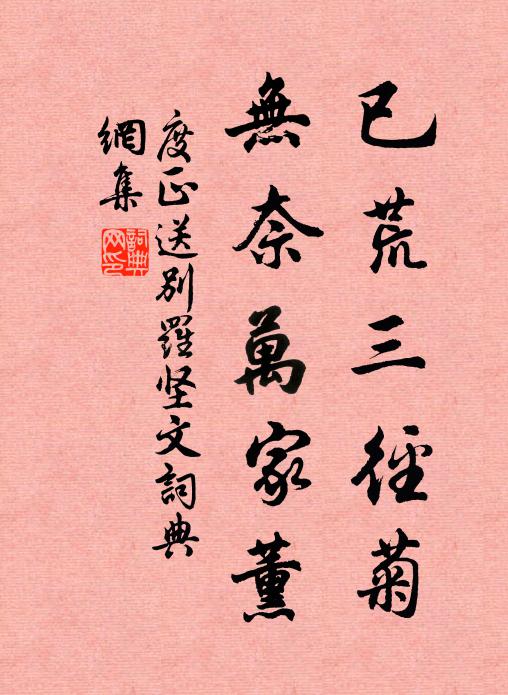 已荒三徑菊
無奈萬家薰
度正送别羅坚文詞典
網集
詞典網印